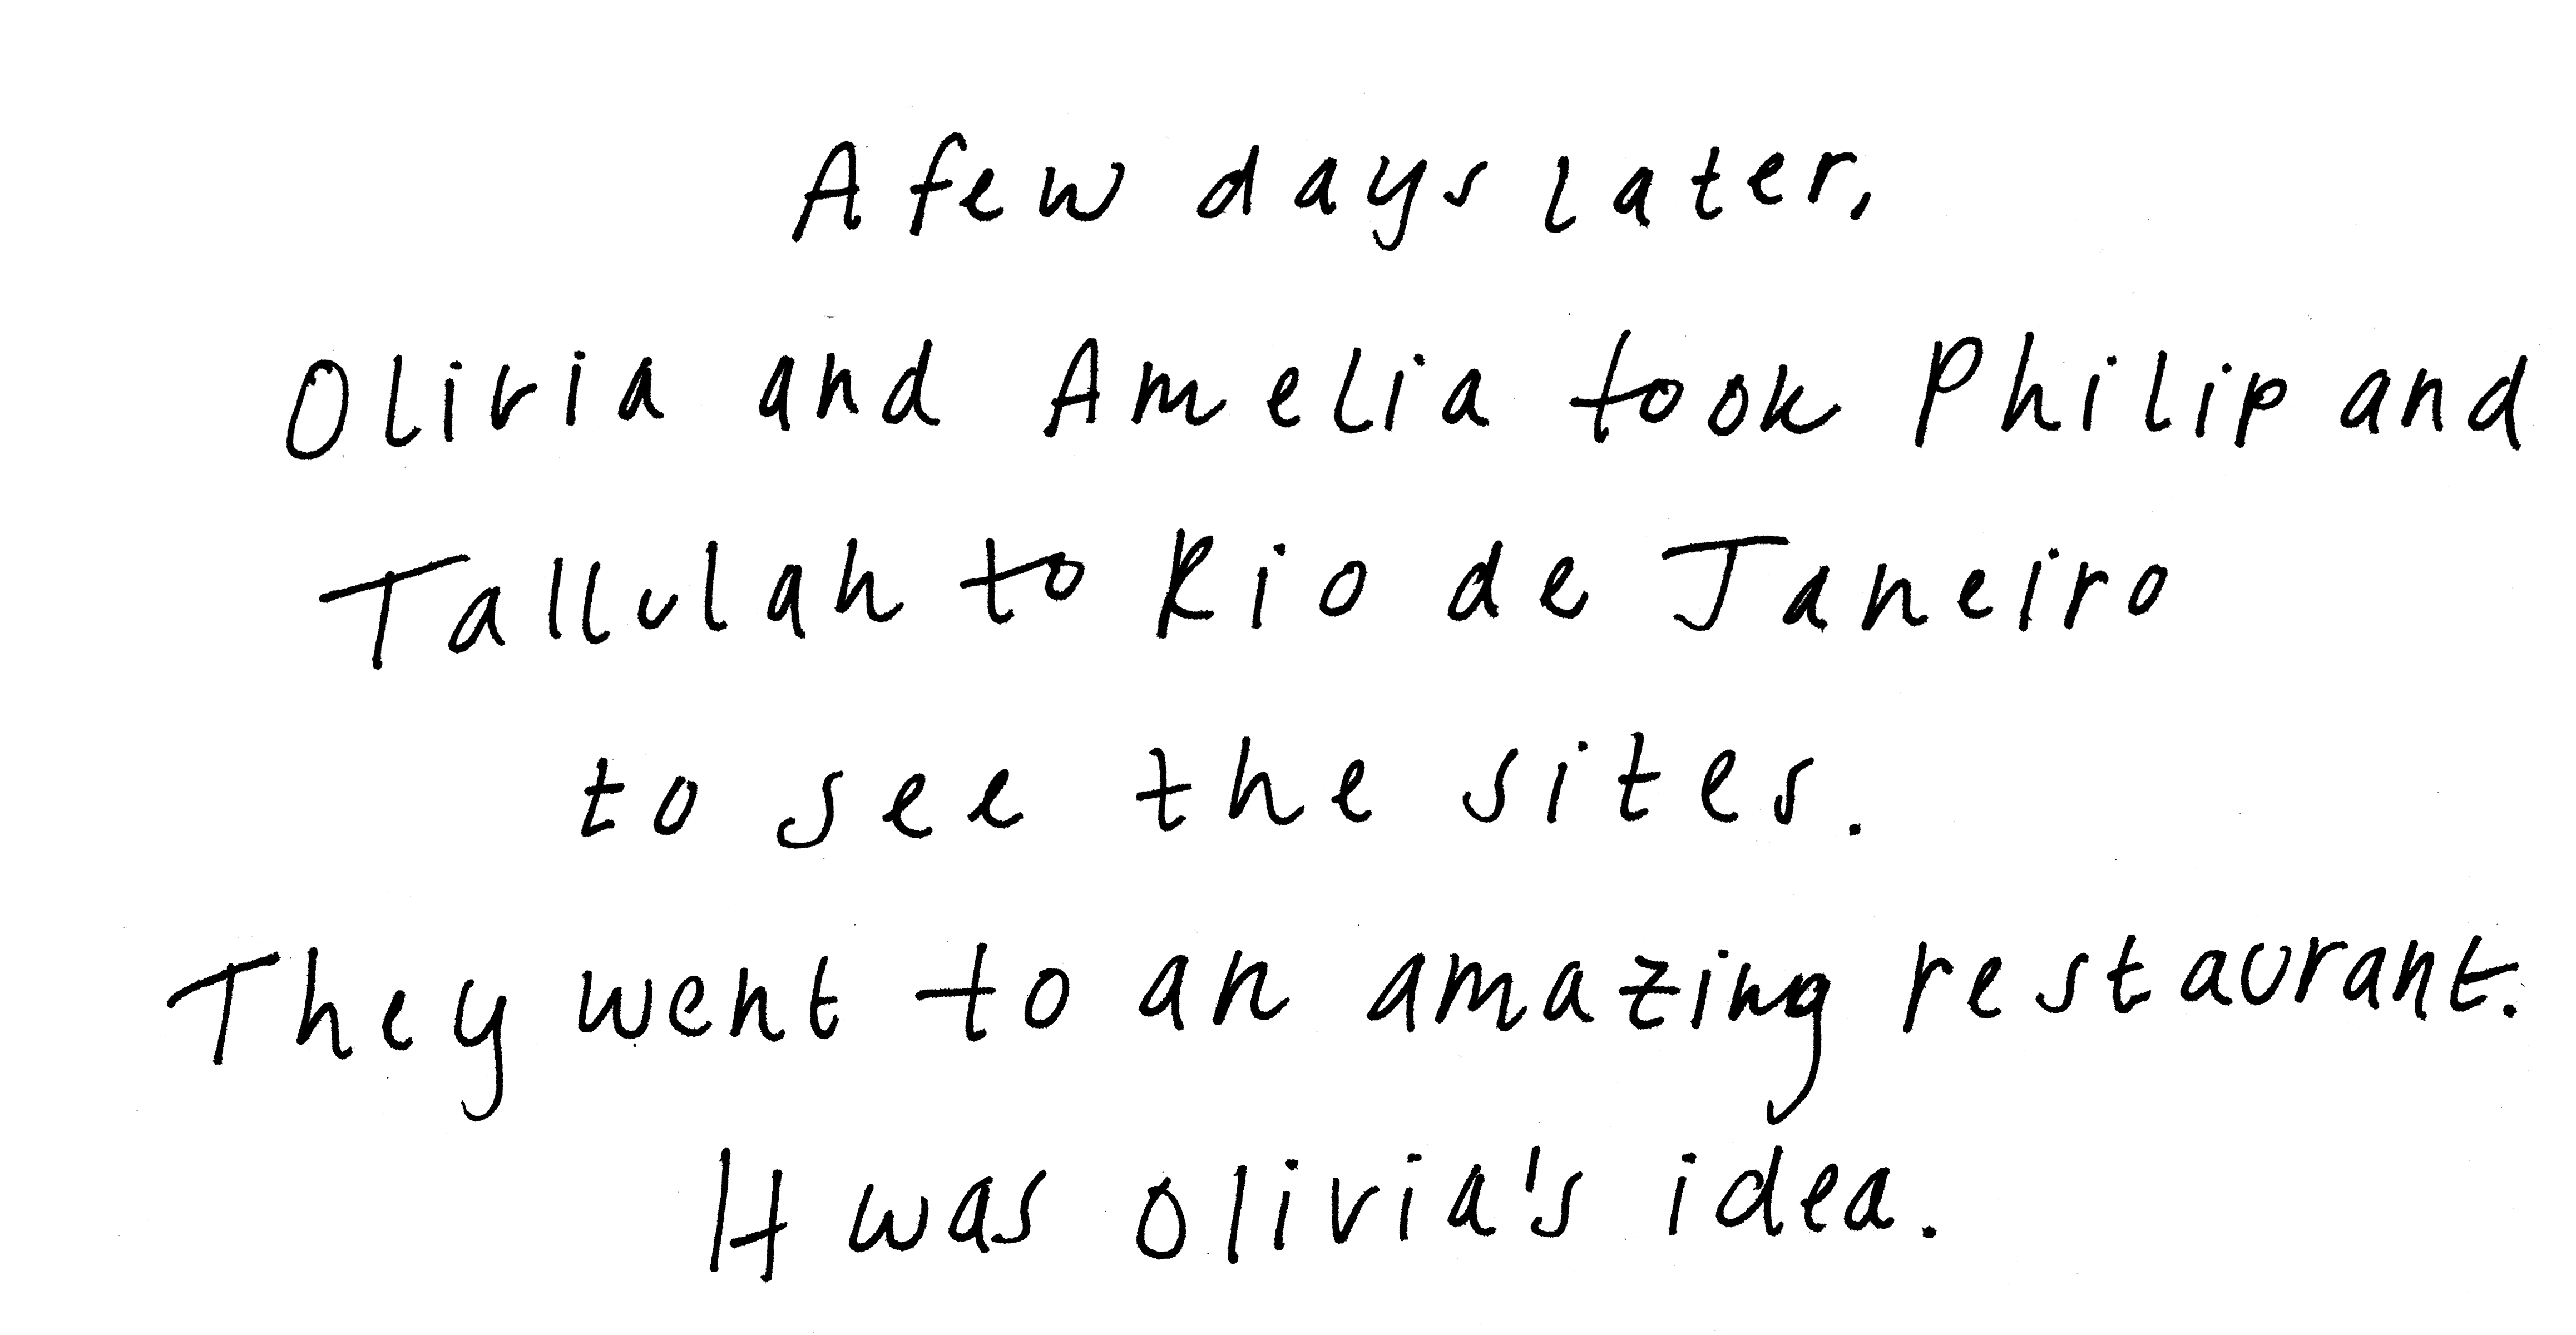 A few days later,
Olivia and Amelia took Philip and
Tallulah to Rio de Janeiro
to see the sites.
They went to an amazing restaurant.
It was Olivia's idea.